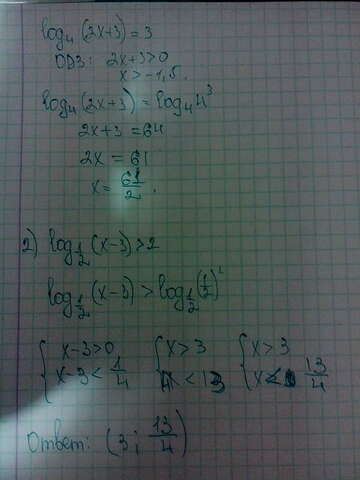 log₄(2x+3)=3
ОДЗ: 2x+3>0
x>-1,5.
log₄(2x+3)=log₄4³
2x+3=64
2x=61
x=61/2.
2) log_1/2(x-3)>2
log_1/2(x-3)>log_1/2(1/2)²
{x-3>0 {x>3 {x>3
x-3<1/4 4x<13 x<13/4
Ответ: (3; 13/4)